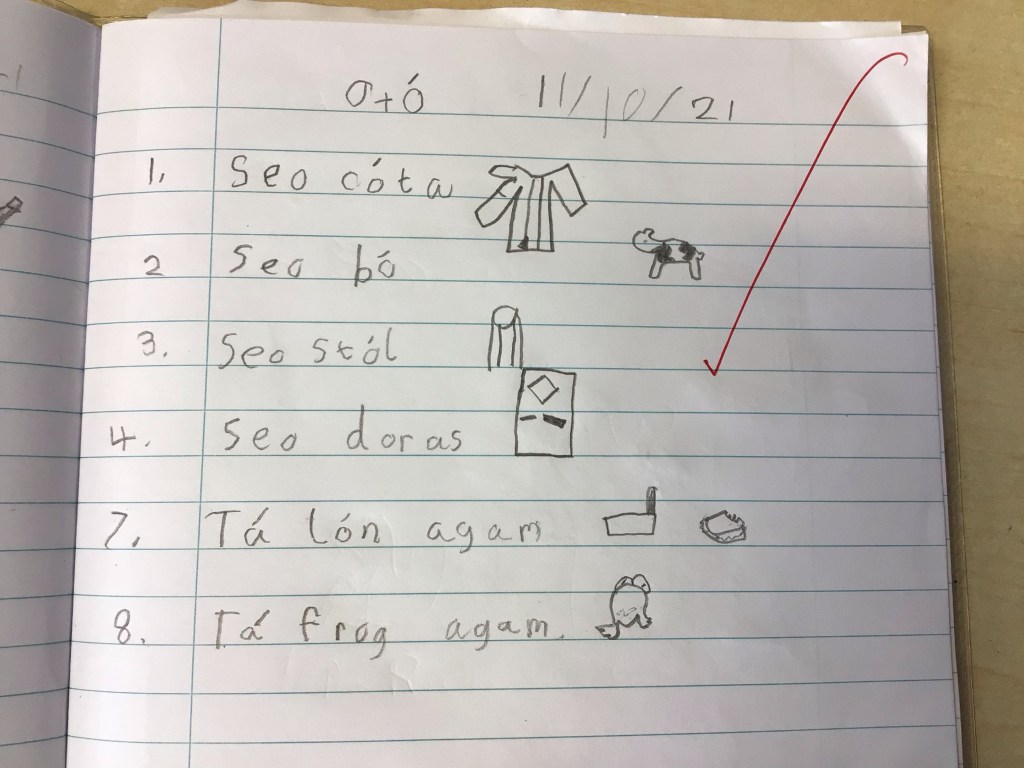 o+ó 11/10/21
1. Seo cóta
2 Seo bó
3. Seo stól
4. Seo doras
7. Tá lón agam
8. Tá frog agam.